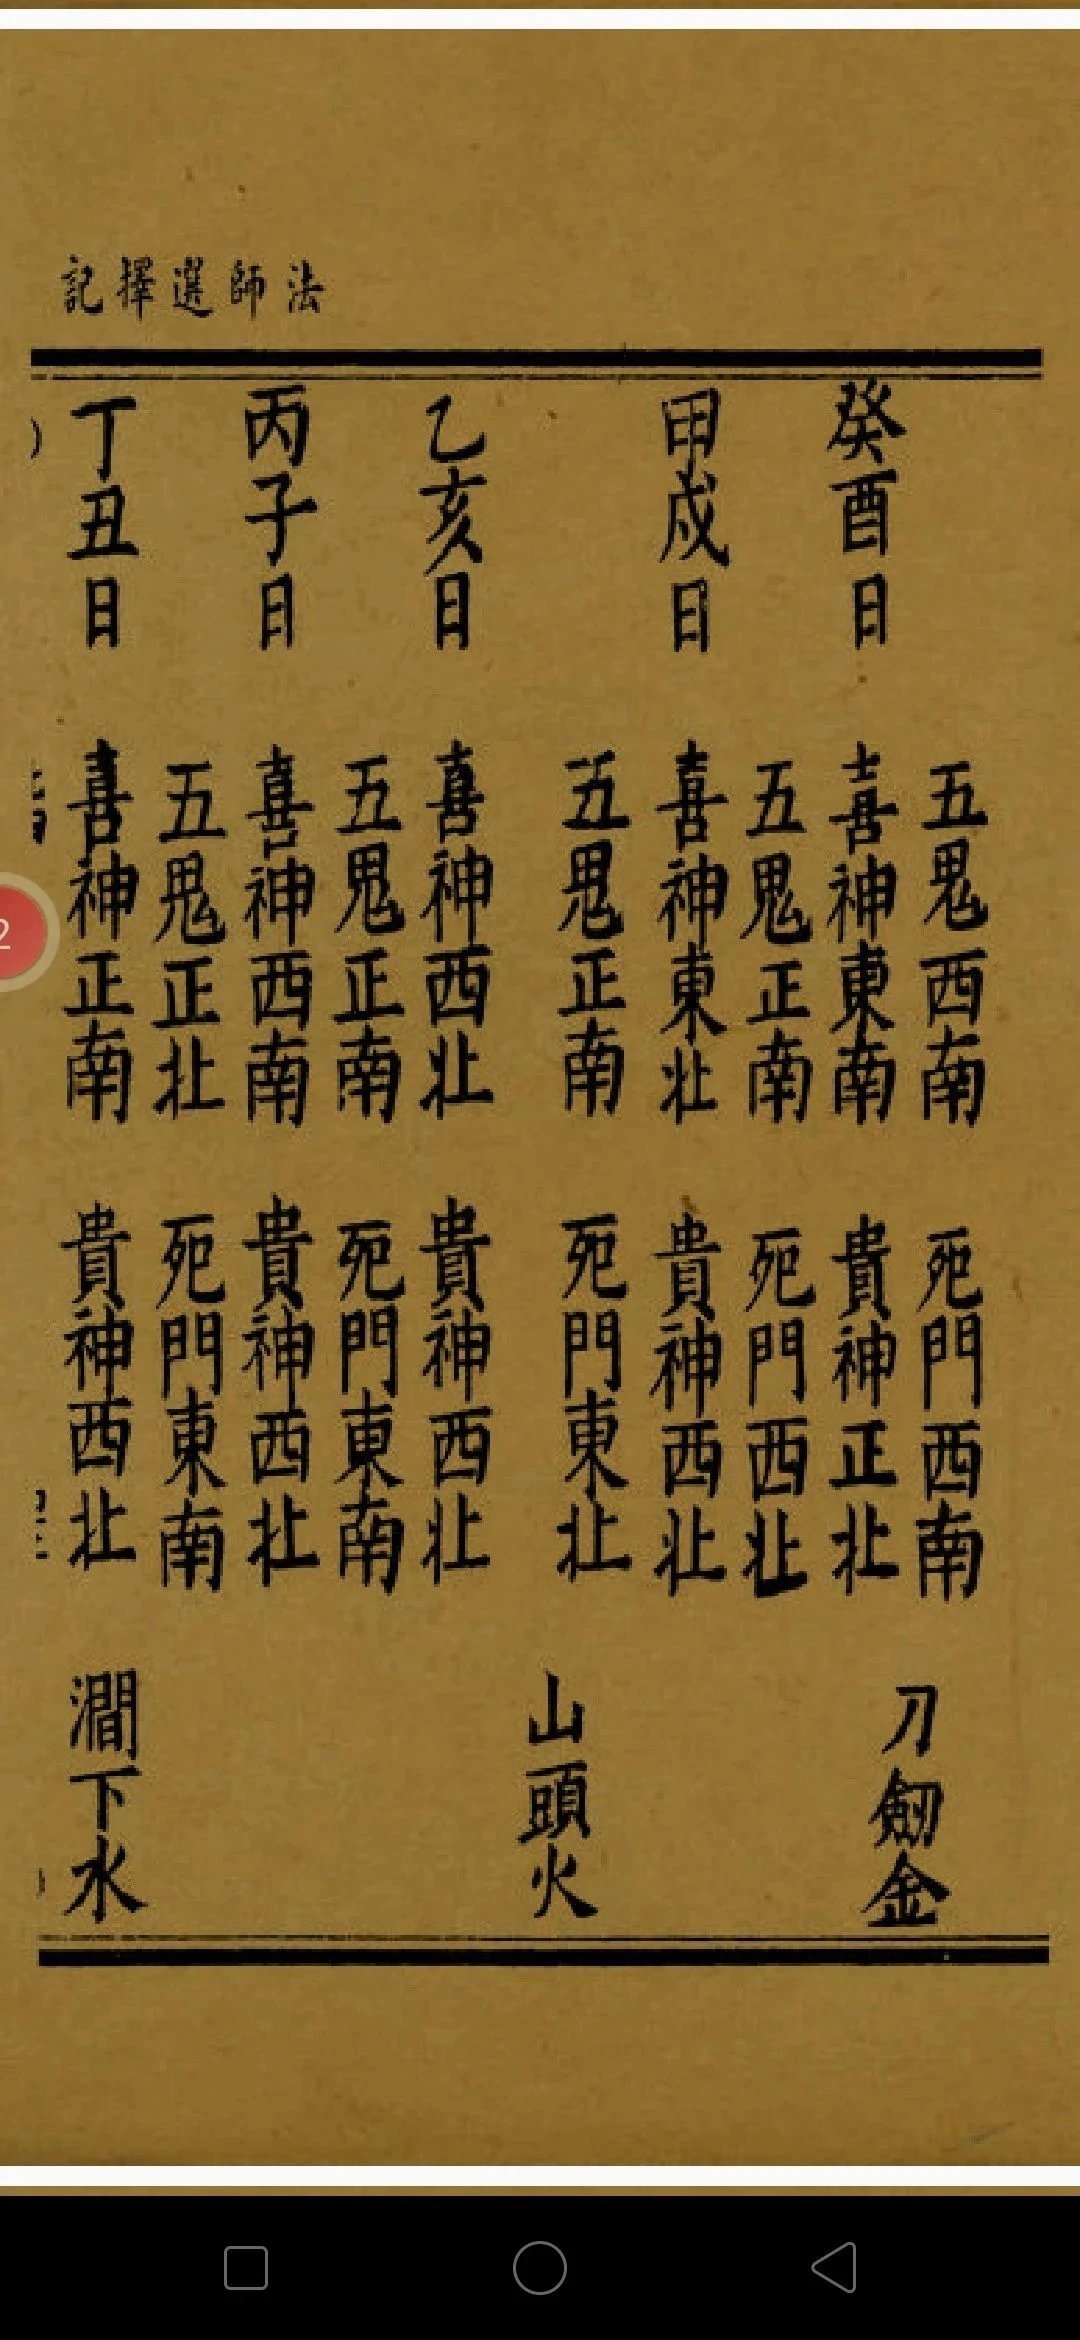 法師選擇記
五鬼西南 死門西南
刀劔金
癸酉日 喜神東南 貴神正北
五鬼正南 死門西北
甲戌日 喜神東北 貴神西北
五鬼正南 死門東北
山頭火
乙亥日 喜神西北 貴神西北
五鬼正南 死門東南
丙子日 喜神西南 貴神西北
五鬼正北 死門東南
丁丑日 喜神正南 貴神西北 澗下水
2